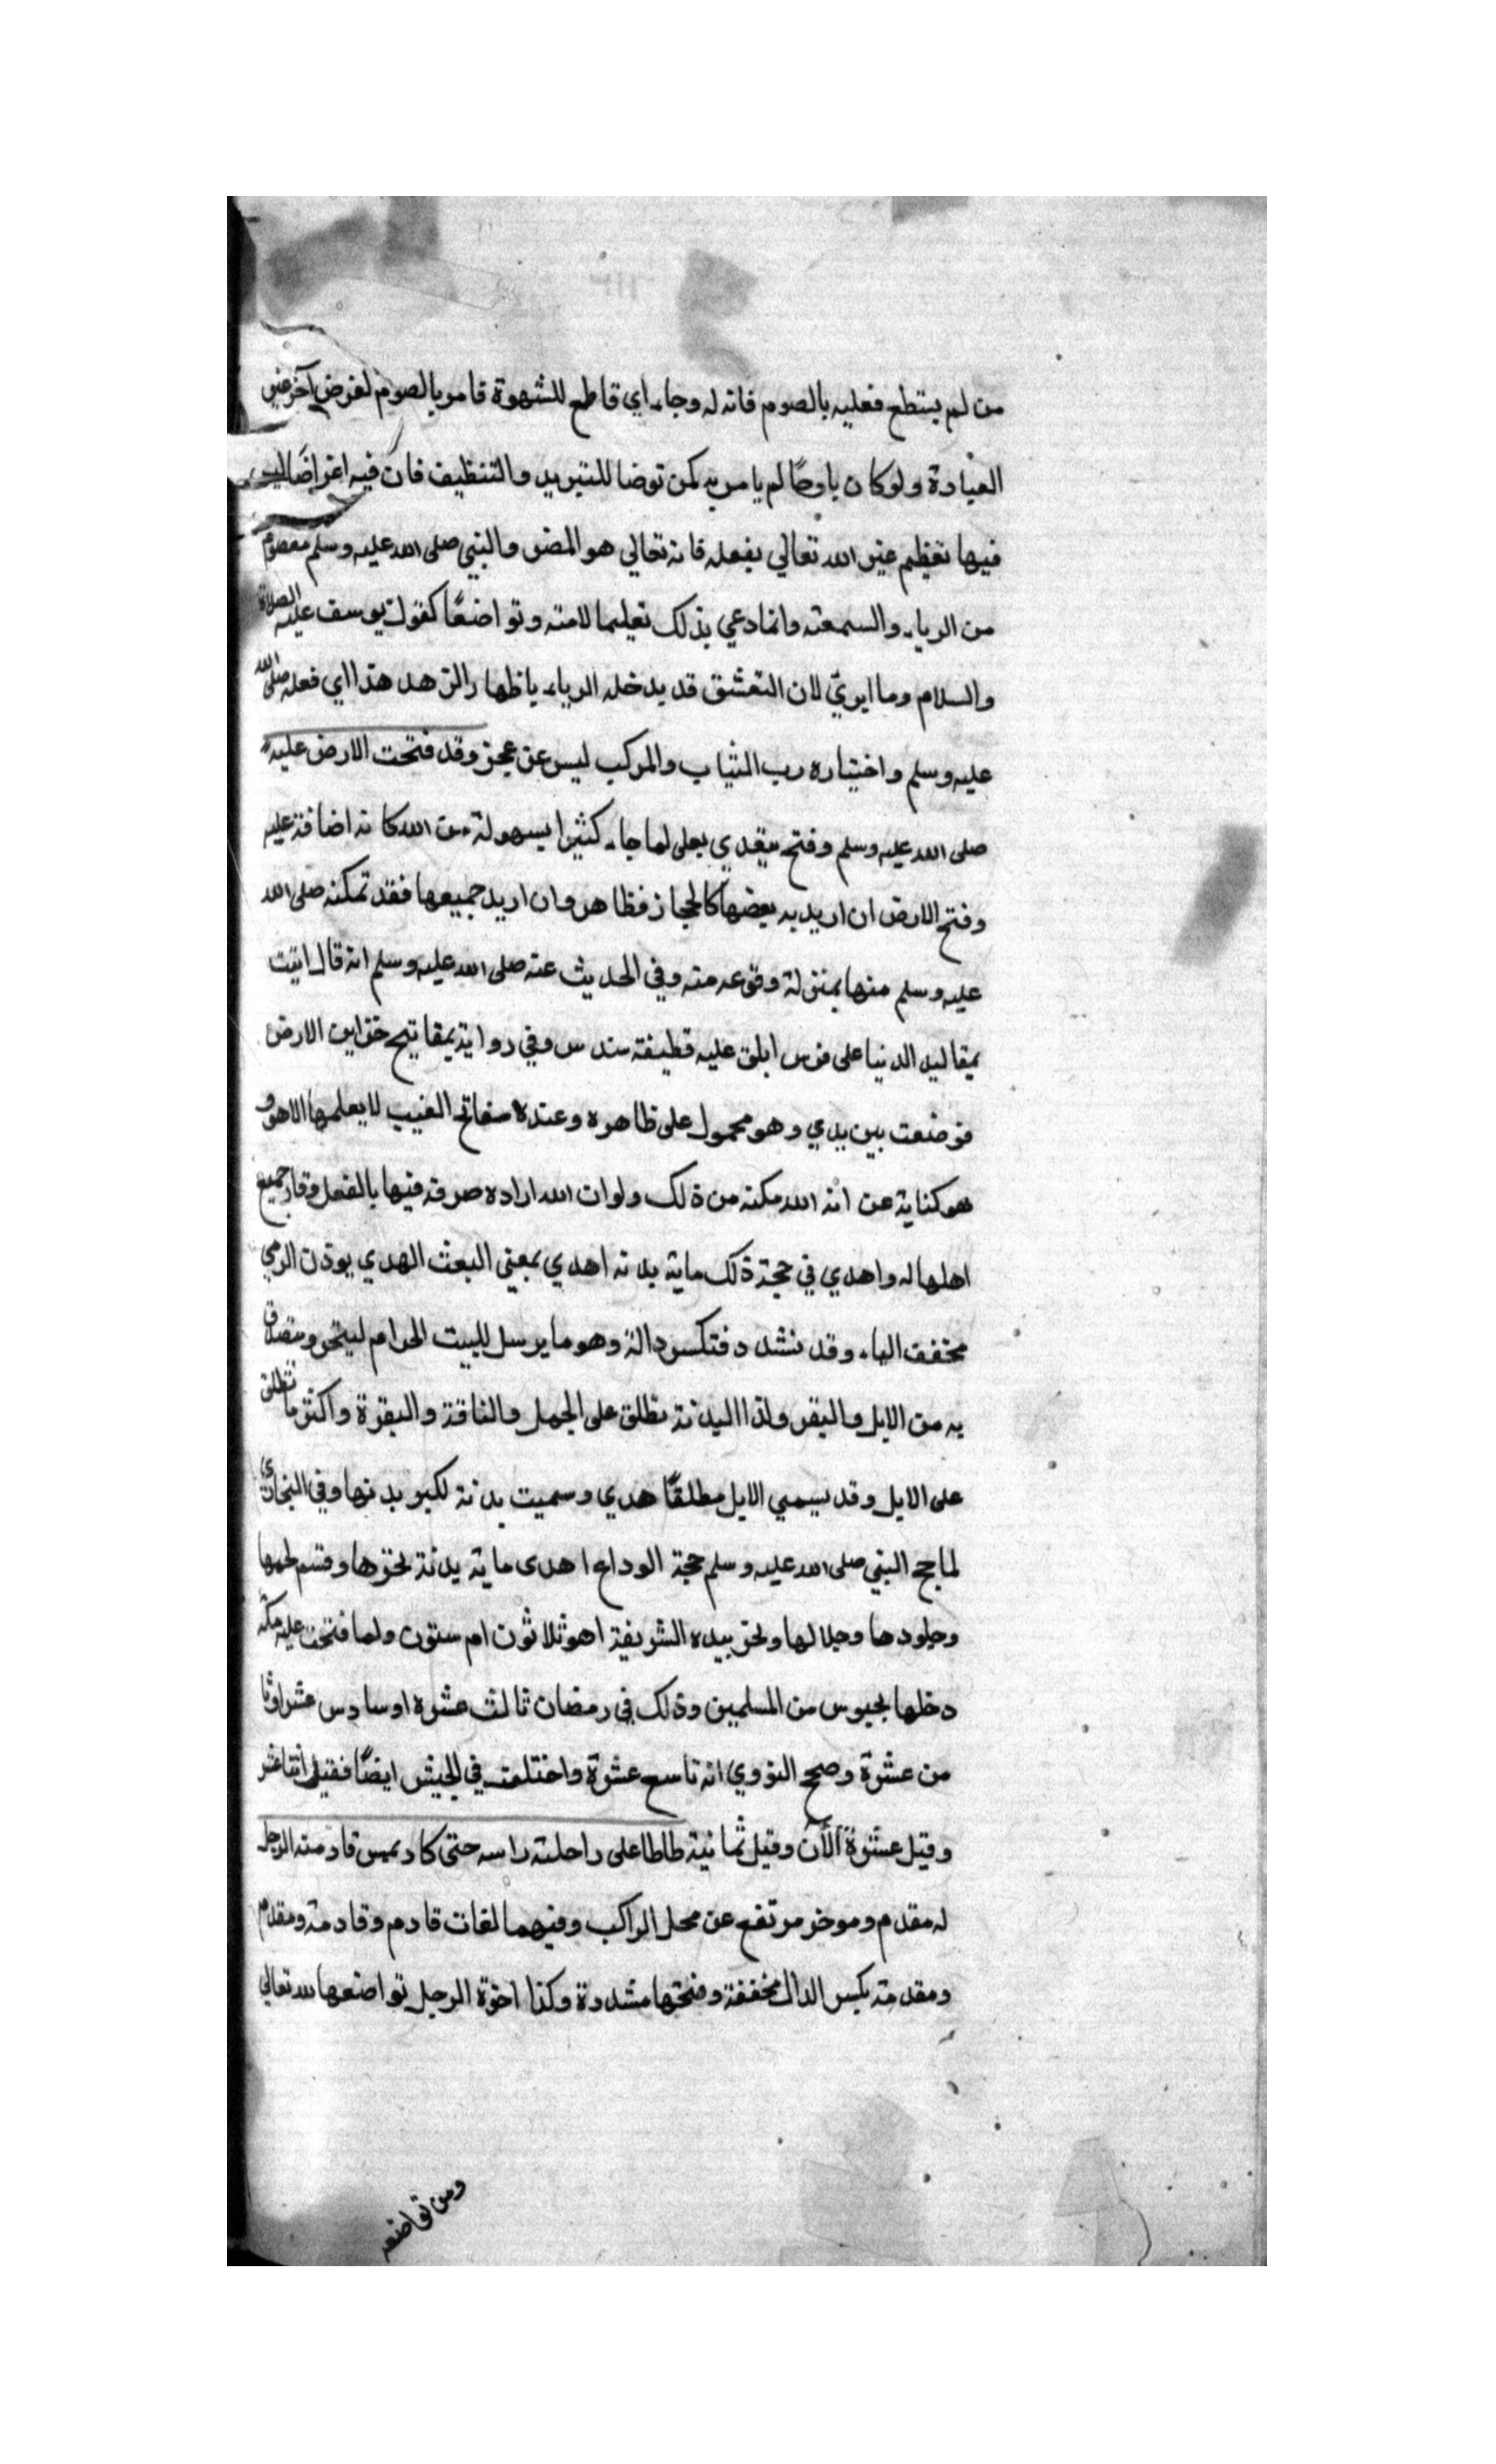 من لم يستطع فعليه بالصوم فانه له وجاء اي قاطع للشهوة فامر بالصوم لغرض آخر غير
العبادة ولو كان ياوحا لم يامر به كمن توضا للتبريد والتنظيف فان فيه اغراضا ليس
فيها تعظيم غير الله تعالي بفعله فانه تعالي هو المضر والنبي صلى الله عليه وسلم معصوم
من الرياء والسمعة وانما دعي بذلك تعليما لامته وتواضعًا كقول يوسف عليه الصلاة
والسلام وما ابريّ لان التعشق قد يدخله الرياء ياظهار الزهد هذا اي فعله صلى الله
عليه وسلم واختياره رب الثياب والمركب ليس عن عجز وقد فتحت الارض عليه
صلى الله عليه وسلم وفتح يتعدي بعلى لما جاء كثيرا بسهولة من الله كانه اضافة عليه
وفتح الارض ان اريد به بعضها كالحجاز فظاهر وان اريد جميعها فقد تمكنه صلى الله
عليه وسلم منها بمنزلة وقوعه منه وفي الحديث عنه صلى الله عليه وسلم انه قال اتيت
بمقاليد الدنيا على فرس ابلق عليه قطيفة سندس وفي رواية بمفاتيح خزاين الارض
فوضعت بين يدي وهو محمول على ظاهره وعنده مفاتح الغيب لا يعلمها الا هو و
هو كناية عن انه الله مكنه من ذلك ولو ان الله اراده صرفه فيها بالفعل وقاد جميع
اهلها له واهدي في حجة ذلك ماية بدنه اهدي بمعني البعث الهدي يوذن الرمي
مخفف الياء وقد تشدد فتكسر دالة وهو ما يرسل للبيت الحرام لينحر ويتصدق
به من الابل والبقر ولذا البدنة تطلق على الجمل والناقة والبقرة واكثر ما تطلق
على الابل وقد يسمي الابل مطلقًا هدي وسميت بدنة لكبر بدنها وفي البخاري
لما حج النبي صلى الله عليه وسلم حجة الوداع اهدى ماية بدنة نحرها وقسم لحمها
وجلودها وجلالها ونحر بيده الشريفة اهو ثلاثون ام ستون ولما فتحت عليه مكة
دخلها بجيوس من المسلمين وذلك في رمضان ثالث عشره او سادس عشر او ثا
من عشرة وصح النووي انه تاسع عشرة واختلف في الجيش ايضًا فقيل اثنا عشر
وقيل عشرة آلآن وقيل ثمانية طاطا على راحلته راسه حتى كاد يمس قادمته الرجل
له مقدم وموخر مرتفع عن محل الراكب وفيهما لغات قادم وقادمة ومقدم
ومقدمة بكسر الدال مخففة وفتحها مشددة وكذا اخرة الرحل تواضعها لله تعالي
ومن تواضعه